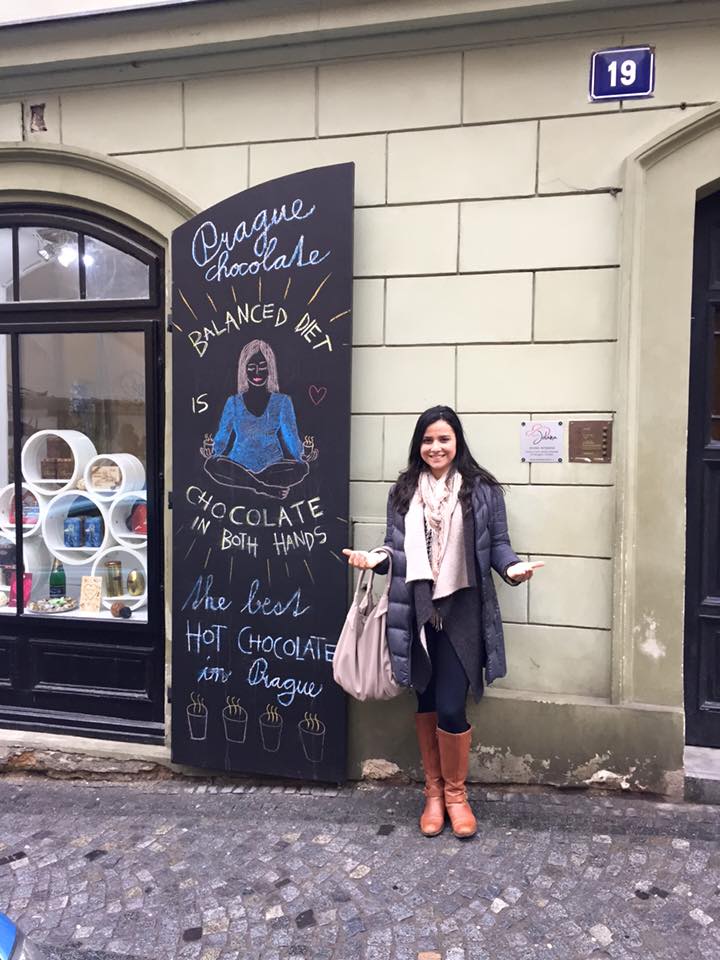 19
Prague
chocolate
BALANCED DIET
IS
CHOCOLATE
IN BOTH HANDS
the best
HOT CHOCOLATE
in Prague